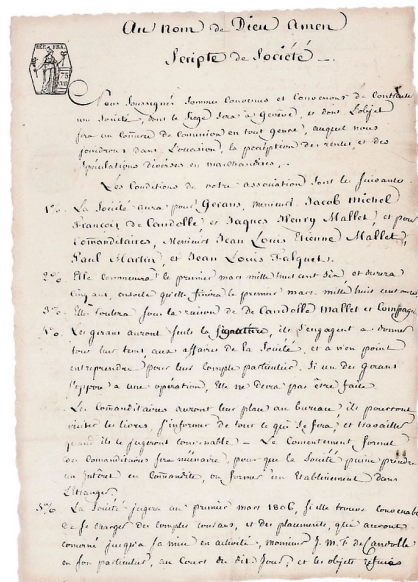 Au Nom de Dieu Amen
Scripte de Société
REP. FRA.
75
Nous Soussignés sommes convenus et convenons de contracter
une Société, dont le Siège sera à Genève, et dont L'objet
sera un Commerce de Commission en tout genre, auquel nous
joindrons dans L'occasion, la perception des rentes, et des
Spéculations diverses en marchandises.
Les Conditions de notre association sont les suivantes
1º. La Société aura pour Gérans, messieurs Jacob Michel
François de Candolle et Jaques Henry Mallet, et pour
Comanditaires, Messieurs Jean Louis Etienne Mallet,
Paul Martin, et Jean Louis Falquet.
2º. Elle commencera le premier mars mille huit cent six, et durera
Cinq ans, ensorte qu'elle finira le premier mars mille huit cent onze
3º. Elle roulera sous la raison de De Candolle Mallet et Compagnie
4º. Les gérans auront seuls la signature, ils s'engagent à donner
tout leur tems, aux affaires de la Société, et à n'en point
entreprendre pour leur compte particulier. Si un des Gérans
s'oppose à une opération, Elle ne devra pas être faite
Les Comanditaires auront leur place au bureau, ils pourront
visiter les livres, s'informer de tout ce qui se fera, et travailler
quand ils le jugeront convenable - Le Consentement formel
des comanditaires sera nécessaire, pour que la Société puisse prendre
un Intérêt en Comandite, ou former un Etablissement dans
L'Etranger
5º. La Société jugera au premier mars 1806, si elle trouve convenable
de se charger des comptes courans, et des placemens, qui auront
concerné jusqu'à sa mise en activité, monsieur J. M. F. de Candolle
en son particulier, au Cours du dit Jour, et les objets refusés